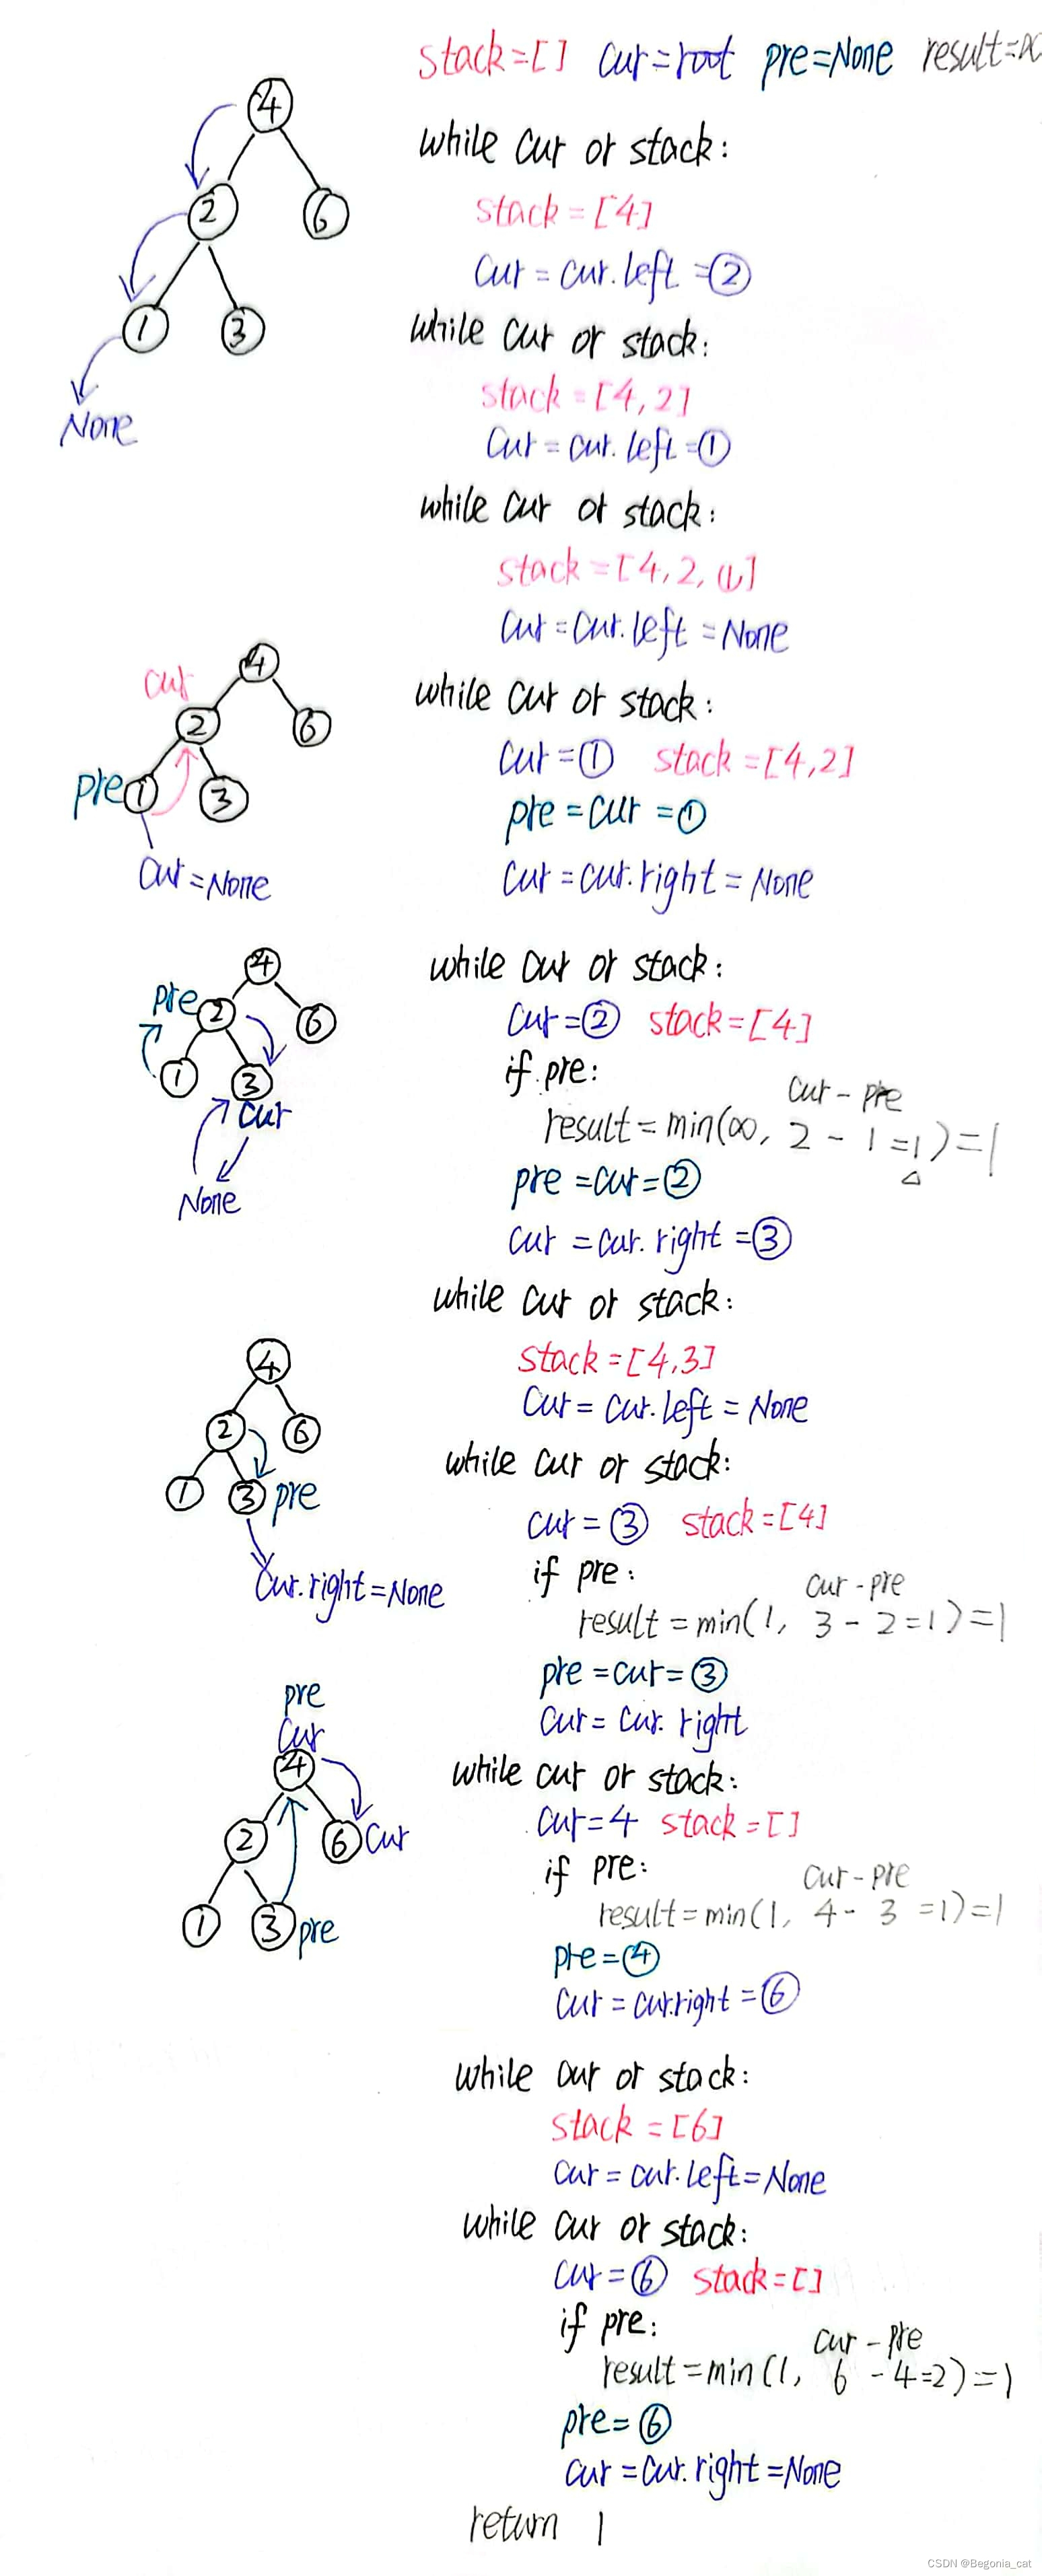 stack=[] cur=root pre=None result=∞
4
while cur or stack:
2
6
stack=[4]
cur=cur.left=②
1
3
while cur or stack:
stack=[4,2]
None
cur=cur.left=①
while cur or stack:
stack=[4,2,1]
cur=cur.left=None
4
cur
while cur or stack:
2
6
cur=① stack=[4,2]
pre
1
3
pre=cur=①
cur=None
cur=cur.right=None
while cur or stack:
4
pre
2
6
cur=② stack=[4]
if pre:
1
3
cur-pre
cur
result=min(∞, 2-1=1)=1
pre=cur=②
None
cur=cur.right=③
while cur or stack:
4
stack=[4,3]
cur=cur.left=None
2
6
while cur or stack:
1
3
pre
cur=③ stack=[4]
if pre:
cur.right=None
cur-pre
result=min(1, 3-2=1)=1
pre=cur=③
pre
cur=cur.right
cur
4
while cur or stack:
cur=4 stack=[]
2
6
cur
if pre:
cur-pre
1
3
pre
result=min(1, 4-3=1)=1
pre=④
cur=cur.right=⑥
while cur or stack:
stack=[6]
cur=cur.left=None
while cur or stack:
cur=⑥ stack=[]
if pre:
cur-pre
result=min(1, 6-4=2)=1
pre=⑥
cur=cur.right=None
return 1
CSDN @Begonia_cat